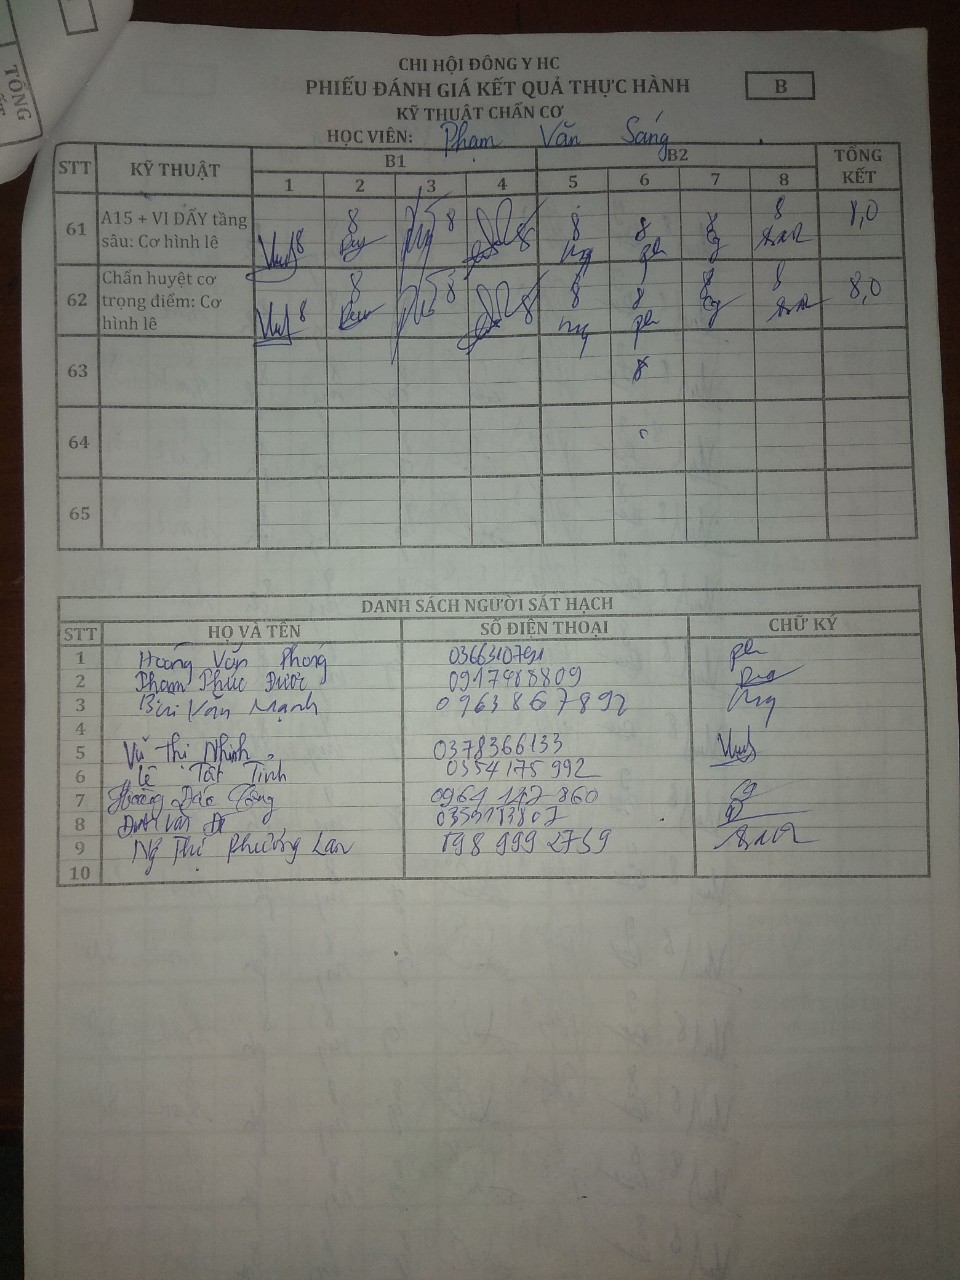 TỔNG
CHI HỘI ĐÔNG Y HC
PHIẾU ĐÁNH GIÁ KẾT QUẢ THỰC HÀNH
B
KỸ THUẬT CHẨN CƠ
HỌC VIÊN: Phạm Văn Sáng
STT KỸ THUẬT B1 B2 TỔNG KẾT
1 2 3 4 5 6 7 8
61 A15 + VI DẤY tầng sâu: Cơ hình lê 8 8 8 8 8 8 8 8 8,0
62 Chẩn huyệt cơ trọng điểm: Cơ hình lê 8 8 8 8 8 8 8 8 8,0
63 8
64
65
DANH SÁCH NGƯỜI SÁT HẠCH
STT HỌ VÀ TÊN SỐ ĐIỆN THOẠI CHỮ KÝ
1 Hoàng Văn Phong
2 Phạm Phúc Được 0917488809
3 Bùi Văn Mạnh 0963867892
4
5 Vũ Thị Nhinh 0378366133
6 Lê Tất Tình 0354175992
7 Hoàng Đắc Công 0961 142 860
8
9 Ng Thị Phương Lan 098 999 2759
10